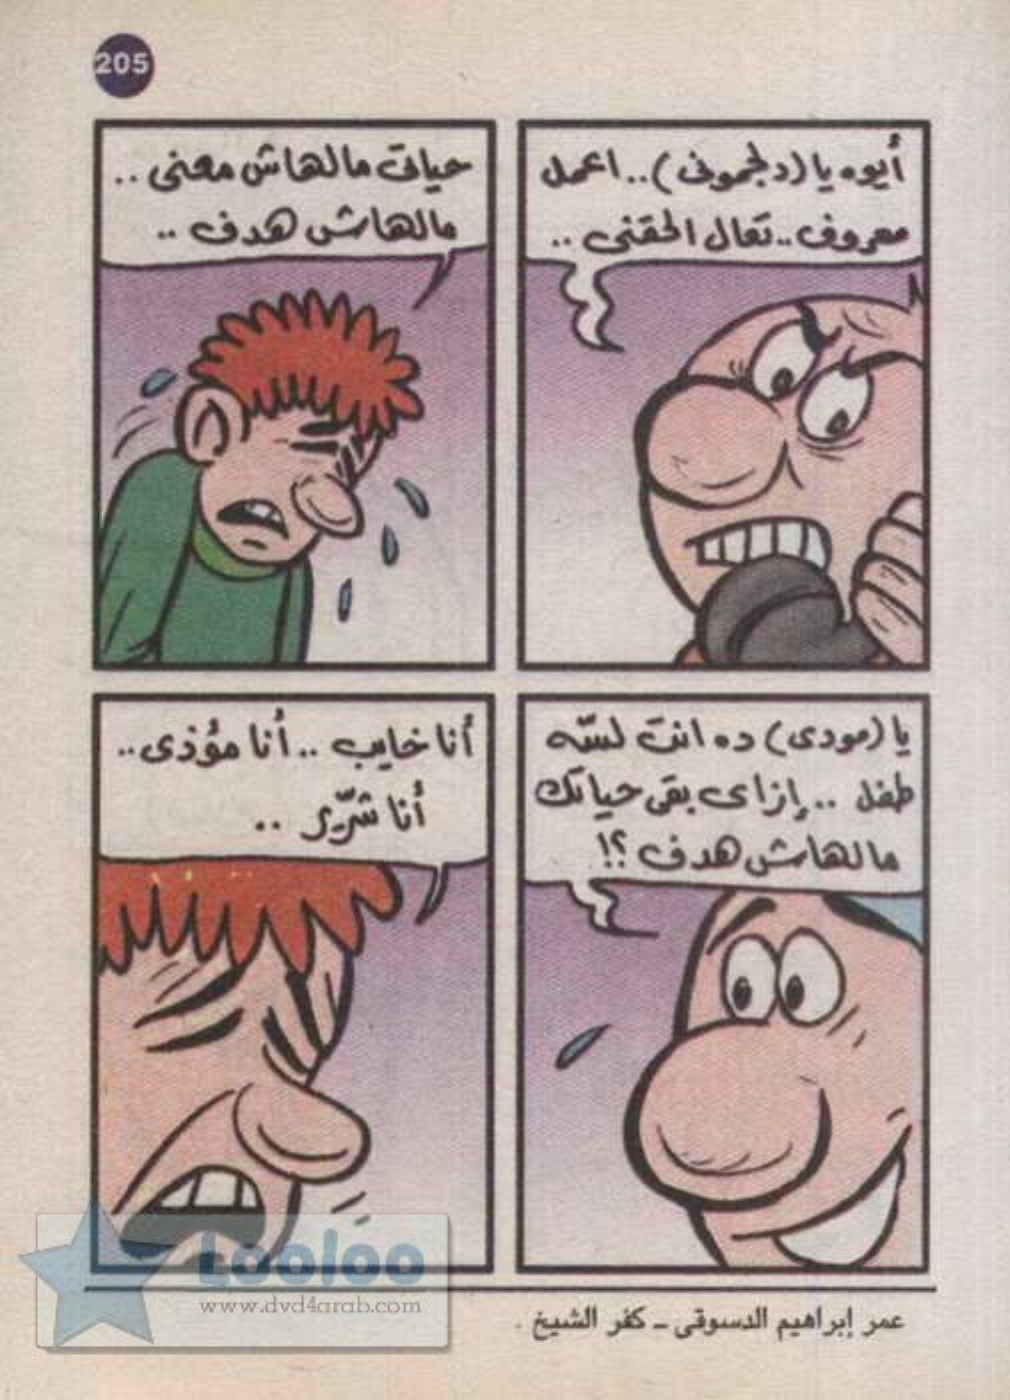 205
أيوه يا (دلجموني).. اعمل
معروف.. تعال الحقنى ..
حياتى مالهاش معنى ..
مالهاش هدف ..
يا (مودى) ده انت لسّه
طفل .. إزاى بقى حياتك
مالهاش هدف ؟!
أنا خايب .. أنا مؤذى ..
أنا شرّير ..
Looloo
www.dvd4arab.com
عمر إبراهيم الدسوقى - كفر الشيخ .